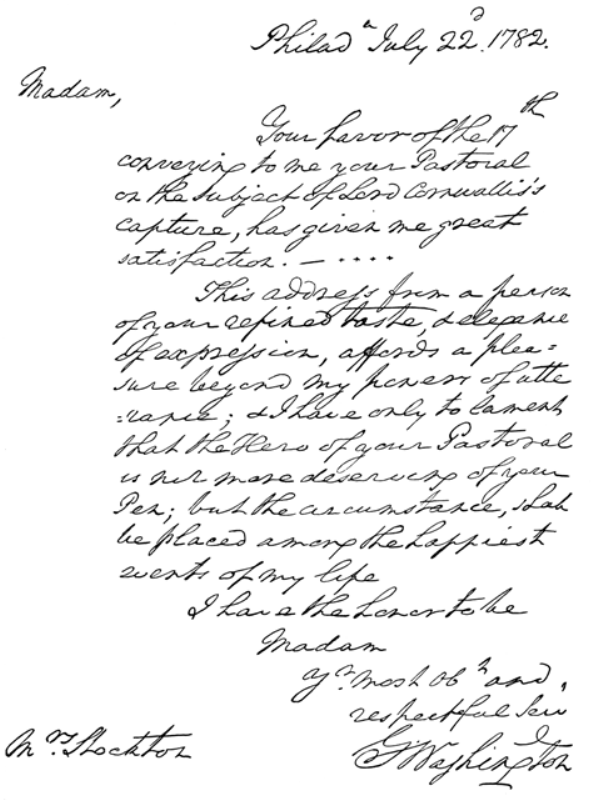 Philad.ᵃ July 22ᵈ. 1782.
Madam,
Your favor of the 17ᵗʰ
conveying to me your Pastoral
on the subject of Lord Cornwallis's
capture, has given me great
satisfaction. — . . . .
This address from a person
of your refined taste, & elegance
of expression, affords a plea=
sure beyond my powers of utte
=rance; & I have only to lament
that the Hero of your Pastoral
is not more deserving of your
Pen; but the circumstance, shall
be placed among the happiest
events of my life
I have the honor to be
Madam
Yʳ. most obᵗ and
respectful Serv
Mʳˢ. Stockton
G. Washington